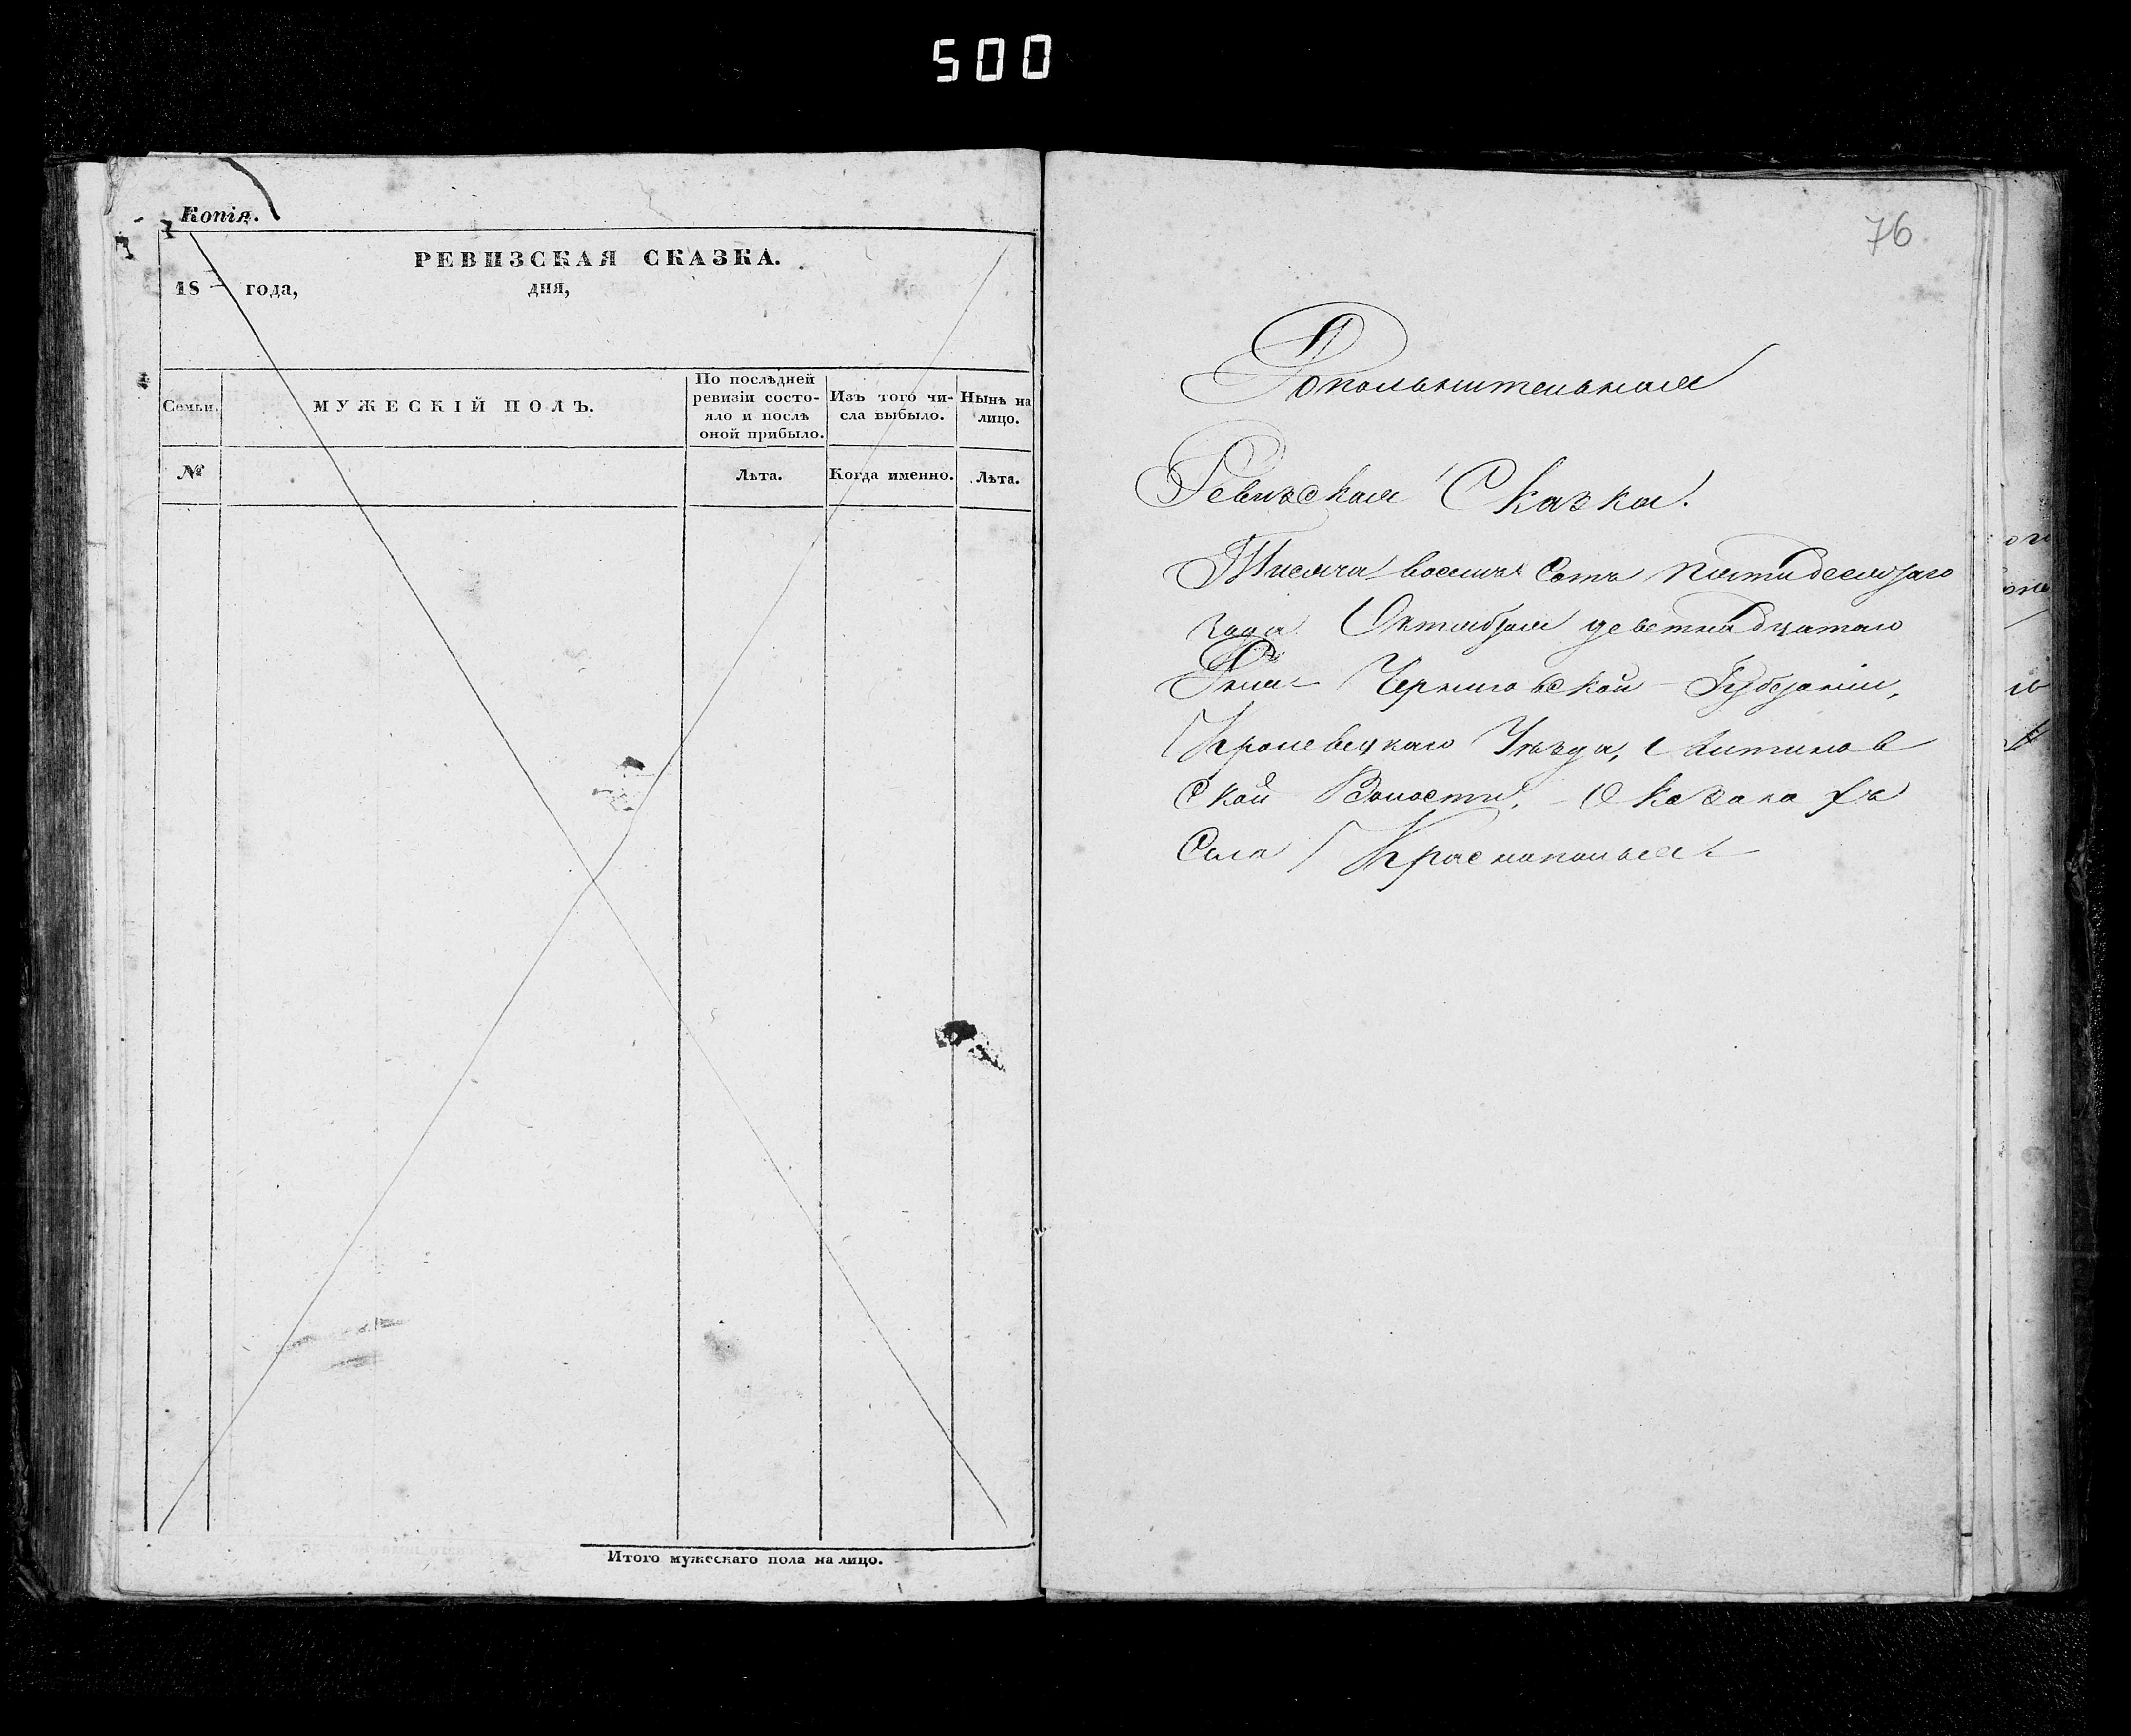 500
Копія.
РЕВИЗСКАЯ СКАЗКА.
18 года, дня,
Семьи.
МУЖЕСКІЙ ПОЛЪ.
По послѣдней
ревизіи состо-
яло и послѣ
оной прибыло.
Изъ того чи-
сла выбыло.
Нынѣ на
лицо.
№
Лѣта.
Когда именно.
Лѣта.
Итого мужескаго пола на лицо.
76
Дополнительная
Ревизская Сказка.
Тысяча восемь сотъ пятидесятаго
года Октября девятнадцатаго
Дня Черниговской Губерніи,
Кролевецкаго Уѣзда,
ской Волости,
Села Краснополья